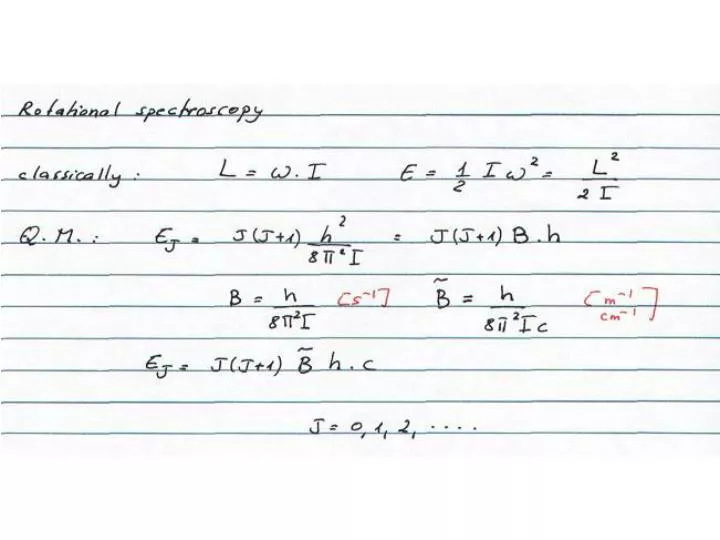 Rotational spectroscopy
classically: L = ω. I E = 1/2 I ω² = L²/2I
Q.M.: E_J = J(J+1) h²/8π²I = J(J+1) B.h
B = h/8π²I [s⁻¹] B̃ = h/8π²Ic [m⁻¹ cm⁻¹]
E_J = J(J+1) B̃ h.c
J = 0, 1, 2, ....